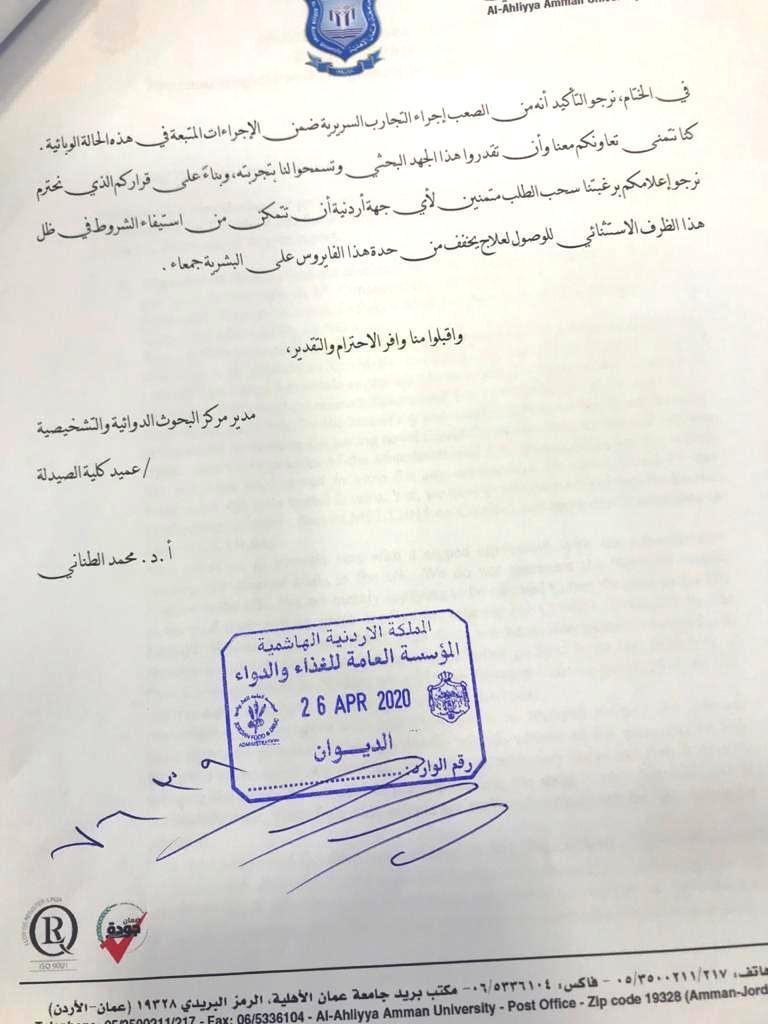 Al-Ahliyya Amman
في الختام، نرجو التأكيد أنه من الصعب إجراء التجارب السريرية ضمن الإجراءات المتبعة في هذه الحالة الوبائية.
كنا نتمنى تعاونكم معنا وأن تقدروا هذا الجهد البحثي وتسمحوا لنا بتجربته، وبناءً على قراركم الذي نحترم
نرجو إعلامكم برغبتنا سحب الطلب متمنين لأي جهة أردنية أن تتمكن من استيفاء الشروط في ظل
هذا الظرف الاستثنائي للوصول لعلاج يخفف من حدة هذا الفايروس على البشرية جمعاء.
واقبلوا منا وافر الاحترام والتقدير،
مدير مركز البحوث الدوائية والتشخيصية
/عميد كلية الصيدلة
أ.د. محمد الطناني
المملكة الاردنية الهاشمية
المؤسسة العامة للغذاء والدواء
26 APR 2020
JORDAN FOOD & DRUG
ADMINISTRATION
الديوان
رقم الوارد:
ISO 9001
ضمان
جودة
هاتف: ٠٥/٣٥٠٠٢١١/٢١٧ - فاكس: ٠٦/٥٣٣٦١٠٤ - مكتب بريد جامعة عمان الأهلية، الرمز البريدي ١٩٣٢٨ (عمان-الأردن)
Telephone: 05/3500211/217 - Fax: 06/5336104 - Al-Ahliyya Amman University - Post Office - Zip code 19328 (Amman-Jord